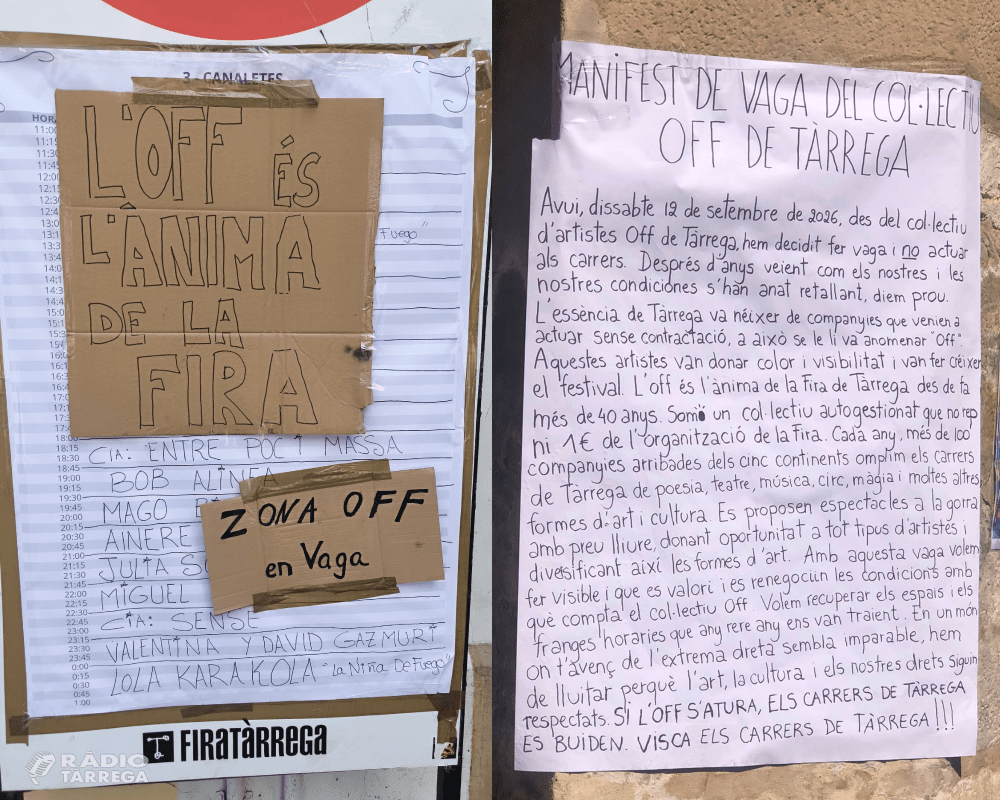 3 - CANALETES
HORA
L'OFF ÉS
L'ÀNIMA
DE LA
FIRA
Fuego"
18:00
18:15
18:30
18:45
19:00
19:15
19:30
19:45
20:00
20:15
20:30
20:45
21:00
21:15
21:30
21:45
22:15
22:30
22:45
23:00
23:15
23:30
23:45
0:00
0:15
0:30
0:45
1:00
CIA: ENTRE POC I MASSA
BOB ALINEA
MAGO
AINERE
JULIA
MIGUEL
CIA: SENSE
VALENTINA Y DAVID GAZMURI
LOLA KARAKOLA "La Niña De Fuego"
ZONA OFF
en Vaga
FIRATÀRREGA
RÀDIO
TÀRREGA
MANIFEST DE VAGA DEL COL·LECTIU
OFF DE TÀRREGA
Avui, dissabte 12 de setembre de 2026, des del col·lectiu
d'artistes Off de Tàrrega, hem decidit fer vaga i no actuar
als carrers. Després d'anys veient com els nostres i les
nostres condiciones s'han anat retallant, diem prou.
L'essència de Tàrrega va néixer de companyies que venien a
actuar sense contractació, a això se le li va anomenar "Off".
Aquestes artistes van donar color i visibilitat i van fer créixer
el festival. L'off és l'ànima de la Fira de Tàrrega des de fa
més de 40 anys. Som un col·lectiu autogestionat que no rep
ni 1€ de l'organització de la Fira. Cada any, més de 100
companyies arribades dels cinc continents omplim els carrers
de Tàrrega de poesia, teatre, música, circ, màgia i moltes altres
formes d'art i cultura. Es proposen espectacles a la gorra
amb preu lliure, donant oportunitat a tot tipus d'artistes i
diversificant així les formes d'art. Amb aquesta vaga volem
fer visible i que es valori i es renegociïn les condicions amb
què compta el col·lectiu Off. Volem recuperar els espais i els
franges horaries que any rere any ens van traient. En un món
on t'avenç de l'extrema dreta sembla imparable, hem
de lluitar perquè l'art, la cultura i els nostres drets siguin
respectats. SI L'OFF S'ATURA, ELS CARRERS DE TÀRREGA
ES BUIDEN. VISCA ELS CARRERS DE TÀRREGA!!!